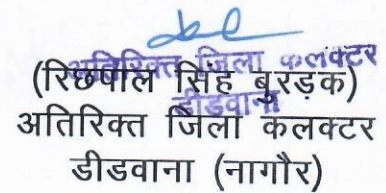 अतिरिक्त जिला कलक्टर
डीडवाना
(रिछपाल सिंह बुरड़क)
अतिरिक्त जिला कलक्टर
डीडवाना (नागौर)